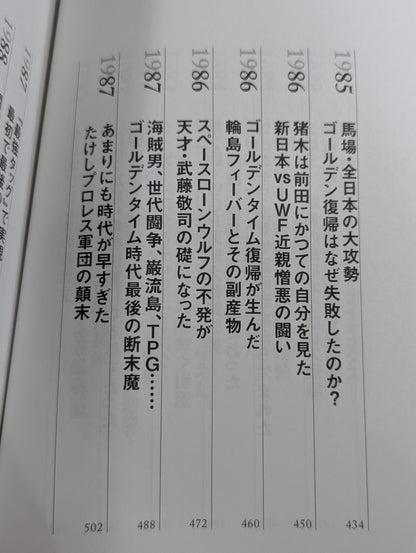 1985
馬場・全日本の大攻勢
ゴールデン復帰はなぜ失敗したのか?
434
1986
猪木は前田にかつての自分を見た
新日本vsUWF近親憎悪の闘い
450
1986
ゴールデンタイム復帰が生んだ
輪島フィーバーとその副産物
460
1986
スペースローンウルフの不発が
天才・武藤敬司の礎になった
472
1987
海賊男、世代闘争、巌流島、TPG……
ゴールデンタイム時代最後の断末魔
488
1987
あまりにも時代が早すぎた
たけしプロレス軍団の顛末
502
1988